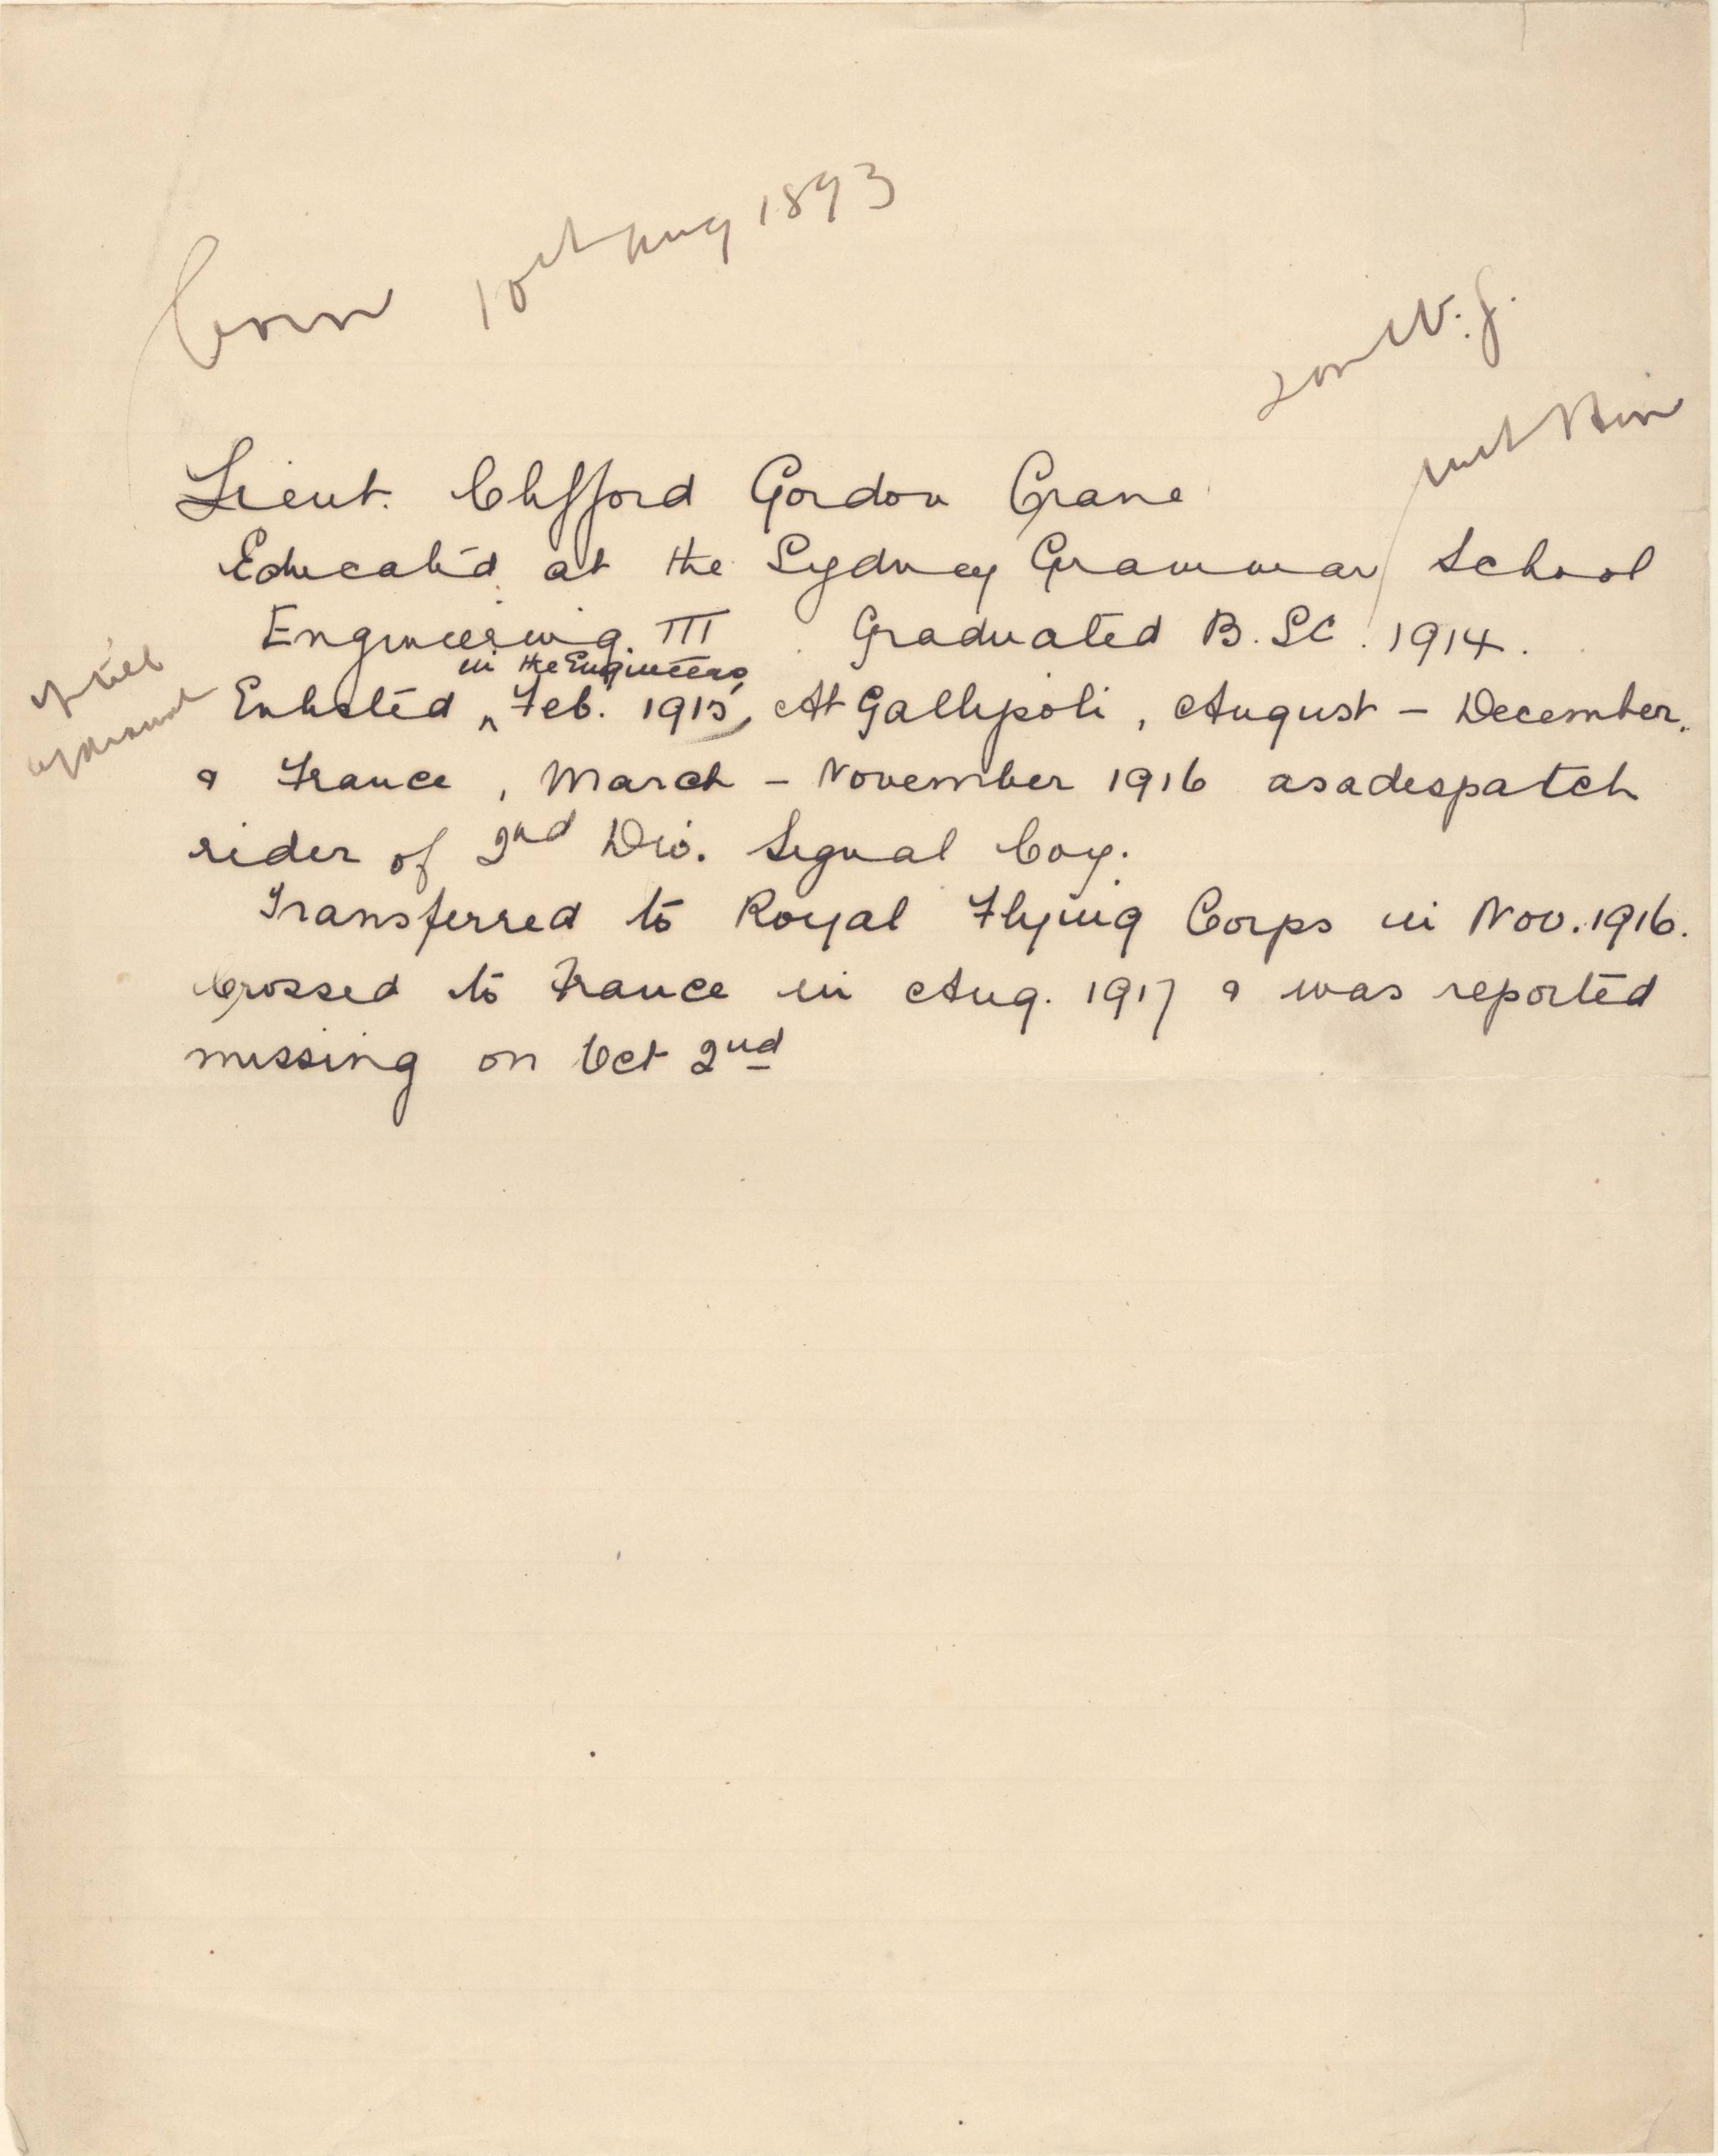 born 10th Aug 1893
son W. J.
Lieut. Clifford Gordon Crane
Educated at the Sydney Grammar School
Engineering III Graduated B. Sc. 1914.
in the Engineers,
Enlisted ^ Feb. 1915, At Gallipoli, August - December,
& France, March - November 1916 as a despatch
rider of 2nd Div. Signal Coy.
Transferred to Royal Flying Corps in Nov. 1916.
Crossed to France in Aug. 1917 & was reported
missing on Oct 2nd